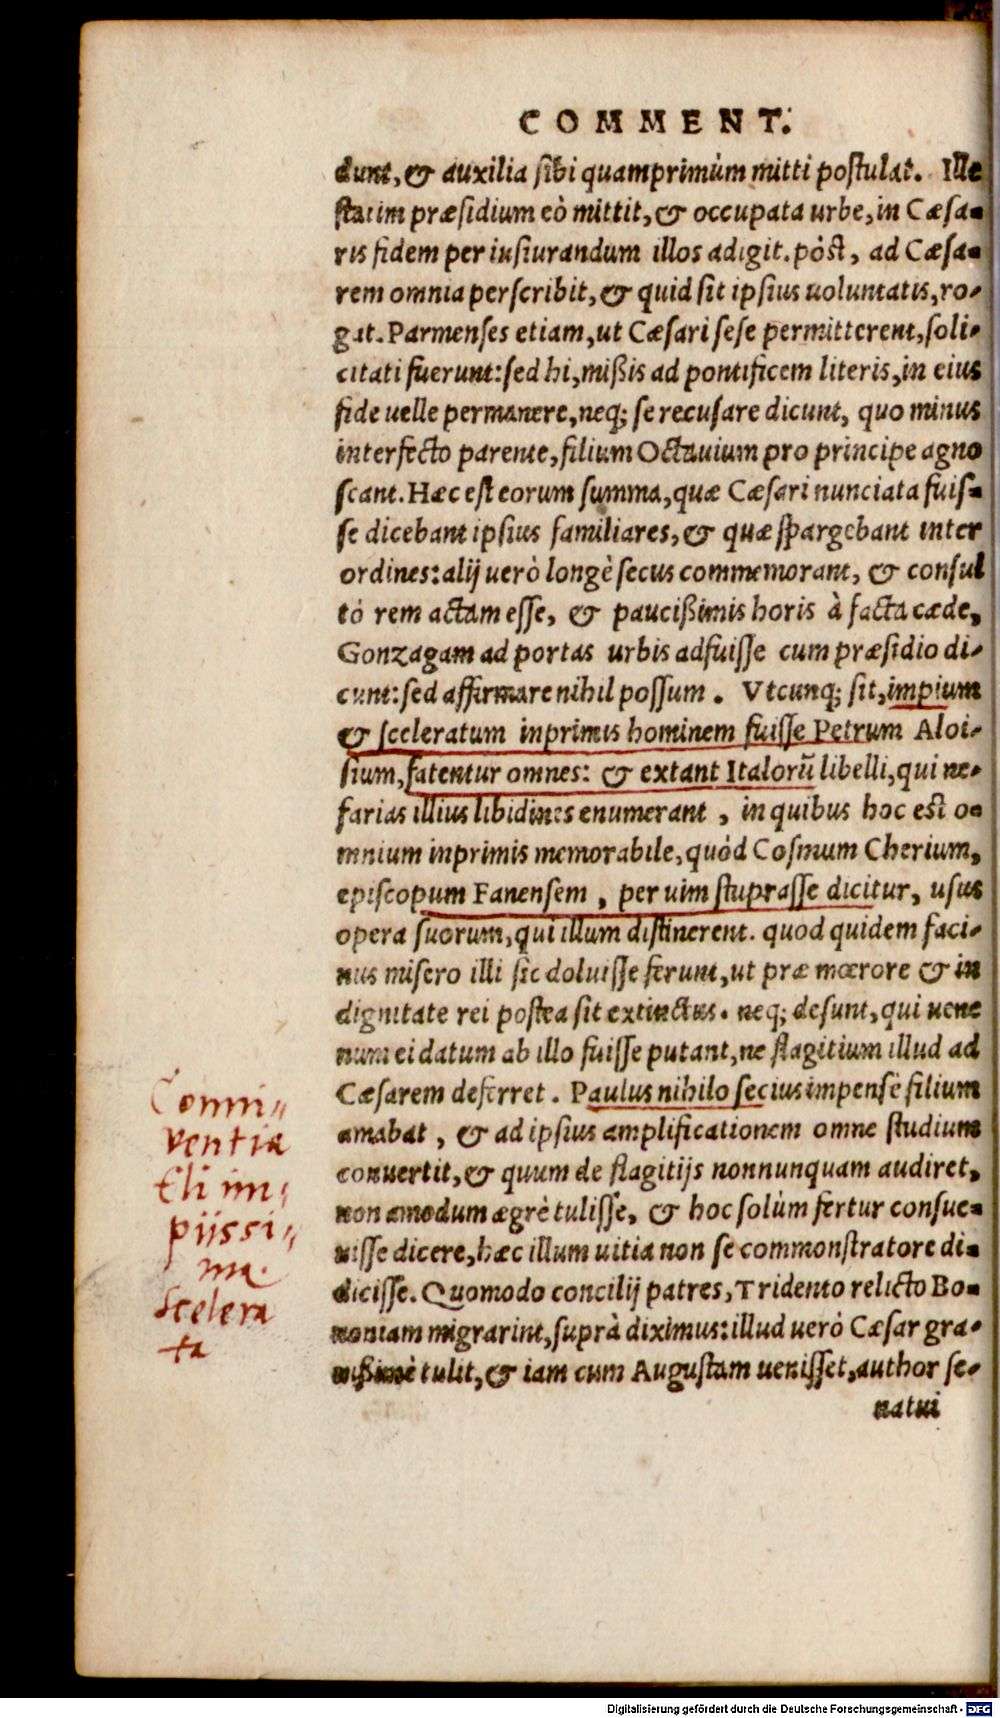 COMMENT.
dunt, & auxilia sibi quamprimùm mitti postulat. Ille
statim præsidium eò mittit, & occupata urbe, in Cæsa-
ris fidem per iusiurandum illos adigit. pòst, ad Cæsa-
rem omnia perscribit, & quid sit ipsius uoluntatis, ro-
gat. Parmenses etiam, ut Cæsari sese permitterent, soli-
citati fuerunt: sed hi, mißis ad pontificem literis, in eius
fide uelle permanere, neq; se recusare dicunt, quo minus
interfecto parente, filium Octauium pro principe agno
scant. Hæc est eorum summa, quæ Cæsari nunciata fuis-
se dicebant ipsius familiares, & quæ spargebant inter
ordines: alij uerò longè secus commemorant, & consul
tò rem actam esse, & paucißimis horis à facta cæde,
Gonzagam ad portas urbis adfuisse cum præsidio di-
cunt: sed affirmare nihil possum. Vtcunq; sit, impium
& sceleratum inprimis hominem fuisse Petrum Aloi-
sium, fatentur omnes: & extant Italorū libelli, qui ne-
farias illius libidines enumerant, in quibus hoc est o-
mnium inprimis memorabile, quòd Cosmum Cherium,
episcopum Fanensem, per uim stuprasse dicitur, usus
opera suorum, qui illum distinerent. quod quidem faci-
nus misero illi sic doluisse ferunt, ut præ mœrore & in
dignitate rei postea sit extinctus. neq; desunt, qui uene
num ei datum ab illo fuisse putant, ne flagitium illud ad
Cæsarem deferret. Paulus nihilo secius impensè filium
amabat, & ad ipsius amplificationem omne studium
conuertit, & quum de flagitijs nonnunquam audiret,
non amodum ægrè tulisse, & hoc solùm fertur consue-
uisse dicere, hæc illum uitia non se commonstratore di-
dicisse. Quomodo concilij patres, Tridento relicto Bo-
noniam migrarint, suprà diximus: illud uerò Cæsar gra-
uißimè tulit, & iam cum Augustam uenisset, author se-
natui
Conni//
ventia
Eli im/
piissi//
ma.
Scelera
ta
Digitalisierung gefördert durch die Deutsche Forschungsgemeinschaft - DFG